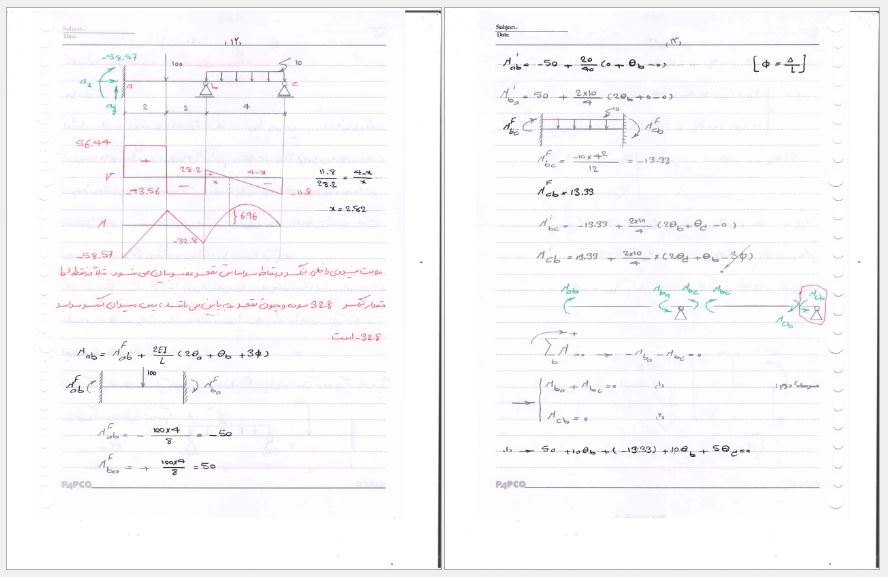 Subject.
Date
،۱۲،
-58.57
100
10
a
b
c
2
2
4
56.44
+
V
28.2
+
x
4-x
-43.56
-11.8
11.8/28.2 = 4-x/x
x = 2.82
M
6.96
-32.8
-58.57
-32.8 است
M_ab = M^F_ab + 2EI/L (2θ_a + θ_b + 3φ)
M^F_ab
100
M^F_ba
M^F_ab = - 100×4/8 = -50
M^F_ba = + 100×4/8 = 50
PAPCO
Subject.
Date
،۱۳،
M'_ab = -50 + 20/40 (0 + θ_b - 0) [φ = Δ/L]
M'_ba = 50 + 2×10/4 (2θ_b + 0 - 0)
M^F_bc
10
M^F_cb
M^F_bc = -10×4²/12 = -13.33
M^F_cb = 13.33
M'_bc = -13.33 + 2×10/4 (2θ_b + θ_c - 0)
M'_cb = 13.33 + 2×10/4 × (2θ_c + θ_b - 3φ)
M_ab
M_ba
M_bc
M_bc
M_cb
M_cb
+
Σ_b M = 0 → -M_ba - M_bc = 0
M_ba + M_bc = 0 ۱،
M_cb = 0 ۲،
۱، → 50 + 10θ_b + (-13.33) + 10θ_b + 5θ_c = 0
PAPCO